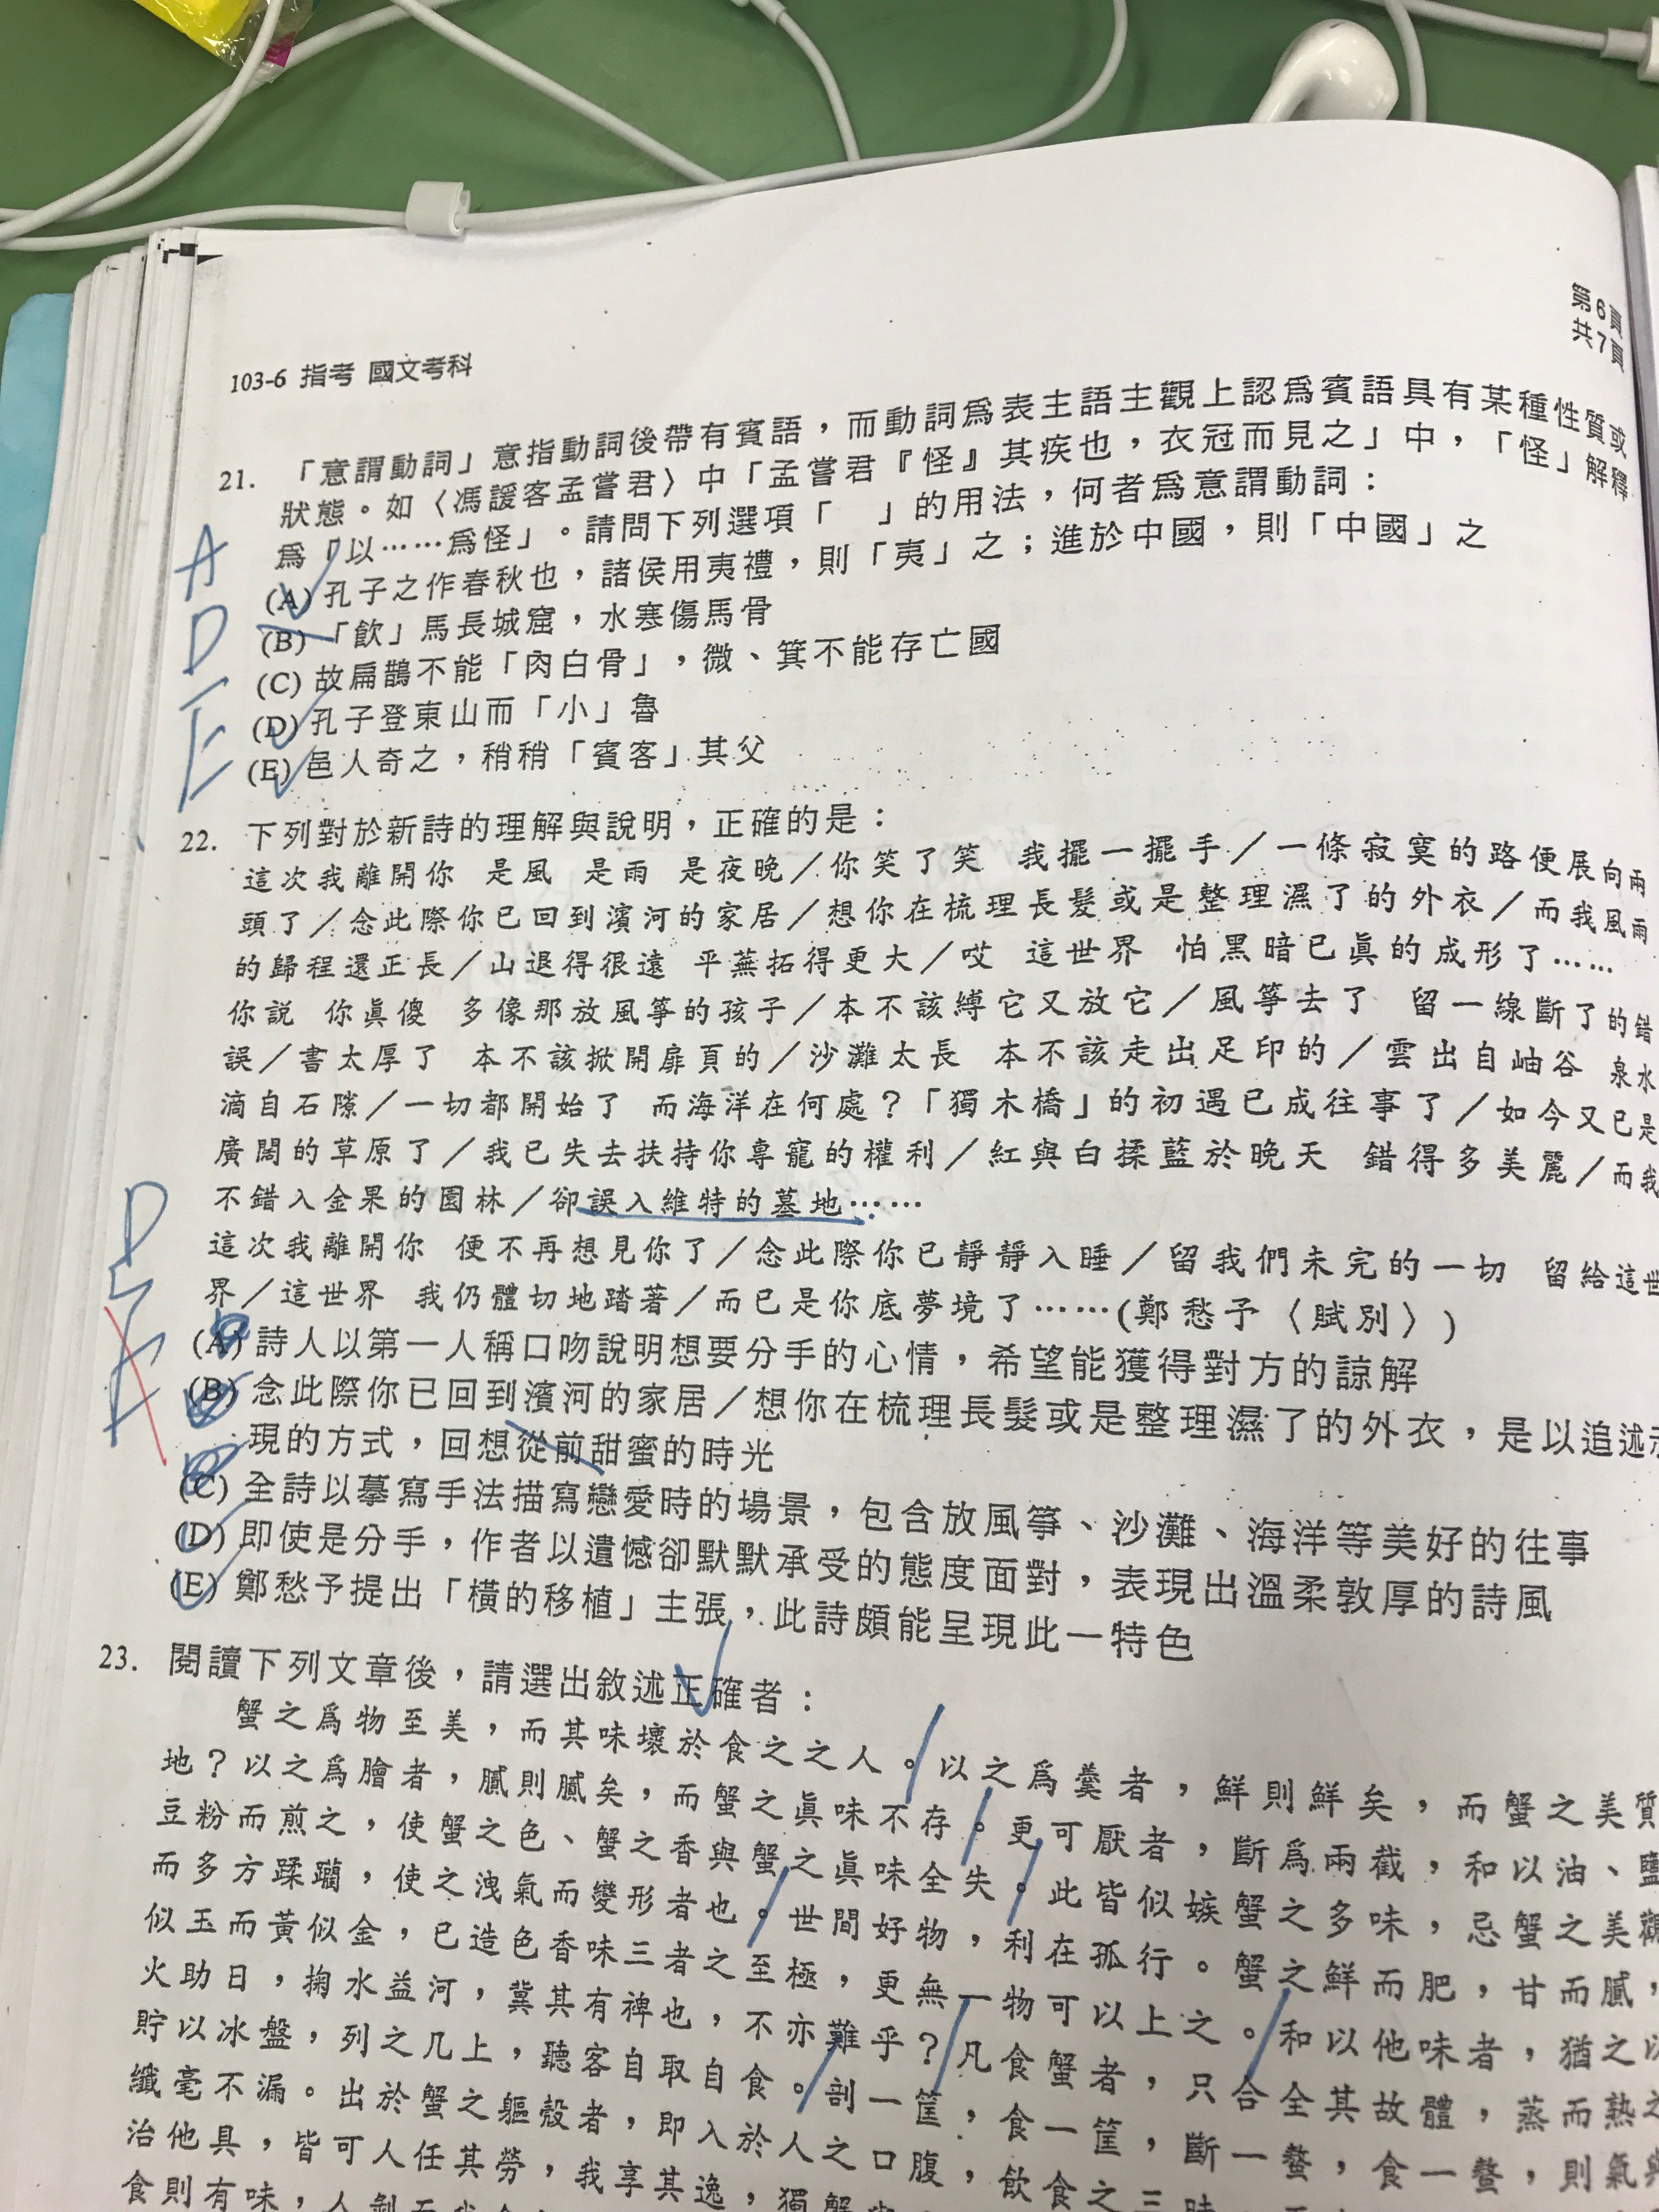 第6頁
共7頁
103-6 指考 國文考科
21. 「意謂動詞」意指動詞後帶有賓語，而動詞爲表主語主觀上認爲賓語具有某種性質或
狀態。如〈馮諼客孟嘗君〉中「孟嘗君『怪』其疾也，衣冠而見之」中，「怪」解釋
爲「以……爲怪」。請問下列選項「　」的用法，何者爲意謂動詞：
A
(A) 孔子之作春秋也，諸侯用夷禮，則「夷」之；進於中國，則「中國」之
D
(B) 「飲」馬長城窟，水寒傷馬骨
(C) 故扁鵲不能「肉白骨」，微、箕不能存亡國
E
(D) 孔子登東山而「小」魯
(E) 邑人奇之，稍稍「賓客」其父
22. 下列對於新詩的理解與說明，正確的是：
這次我離開你 是風 是雨 是夜晚／你笑了笑 我擺一擺手／一條寂寞的路便展向兩
頭了／念此際你已回到濱河的家居／想你在梳理長髮或是整理濕了的外衣／而我風雨
的歸程還正長／山退得很遠 平蕪拓得更大／哎 這世界 怕黑暗已眞的成形了……
你說 你眞傻 多像那放風箏的孩子／本不該縛它又放它／風箏去了 留一線斷了的錯
誤／書太厚了 本不該掀開扉頁的／沙灘太長 本不該走出足印的／雲出自岫谷 泉水
滴自石隙／一切都開始了 而海洋在何處？「獨木橋」的初遇已成往事了／如今又已是
廣闊的草原了／我已失去扶持你專寵的權利／紅與白揉藍於晚天 錯得多美麗／而我
不錯入金果的園林／卻誤入維特的墓地……
D
這次我離開你 便不再想見你了／念此際你已靜靜入睡／留我們未完的一切 留給這世
界／這世界 我仍體切地踏著／而已是你底夢境了……(鄭愁予〈賦別〉)
(A) 詩人以第一人稱口吻說明想要分手的心情，希望能獲得對方的諒解
(B) 念此際你已回到濱河的家居／想你在梳理長髮或是整理濕了的外衣，是以追述
現的方式，回想從前甜蜜的時光
(C) 全詩以摹寫手法描寫戀愛時的場景，包含放風箏、沙灘、海洋等美好的往事
(D) 即使是分手，作者以遺憾卻默默承受的態度面對，表現出溫柔敦厚的詩風
(E) 鄭愁予提出「橫的移植」主張，此詩頗能呈現此一特色
23. 閱讀下列文章後，請選出敘述正確者：
蟹之爲物至美，而其味壞於食之之人。以之爲羹者，鮮則鮮矣，而蟹之美質
地？以之爲膾者，膩則膩矣，而蟹之眞味不存。更可厭者，斷爲兩截，和以油、鹽
豆粉而煎之，使蟹之色、蟹之香與蟹之眞味全失。此皆似嫉蟹之多味，忌蟹之美觀
而多方蹂躪，使之洩氣而變形者也。世間好物，利在孤行。蟹之鮮而肥，甘而膩，
似玉而黃似金，已造色香味三者之至極，更無一物可以上之。和以他味者，猶之以
火助日，掬水益河，冀其有裨也，不亦難乎？凡食蟹者，只合全其故體，蒸而熟之
貯以冰盤，列之几上，聽客自取自食。剖一筐，食一筐，斷一螯，食一螯，則氣與
纖毫不漏。出於蟹之軀殼者，即入於人之口腹，飲食之三
治他具，皆可人任其勞，我享其逸，獨蟹
食則有味，人剝